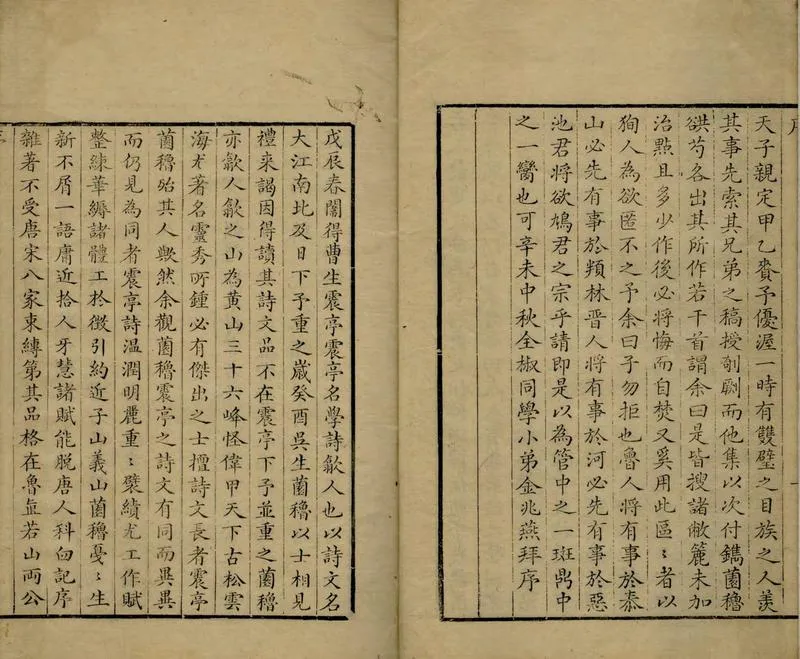 序
天子親定甲乙賚予優渥一時有雙璧之目族之人羨
其事先索其兄弟之稿授剞劂而他集以次付鐫菌穭
谼芍各出其所作若干首謂余曰是皆搜諸敝簏未加
治點且多少作後必將悔而自焚又奚用此區〻者以
狥人為欲匿不之予余曰子勿拒也魯人將有事於泰
山必先有事於頖林晋人將有事於河必先有事於惡
池君將欲鳩君之宗乎請即是以為管中之一斑鼎中
之一臠也可辛未中秋全椒同學小弟金兆燕拜序
戊辰春闈得曹生震亭震亭名學詩歙人也以詩文名
大江南北及日下予重之嵗癸酉吳生菌穭以士相見
禮来謁因得讀其詩文品不在震亭下予並重之菌穭
亦歙人歙之山為黄山三十六峰怪偉甲天下古松雲
海尤著名靈秀所鍾必有傑出之士擅詩文長者震亭
菌穭殆其人歟然余觀菌穭震亭之詩文有同而異異
而仍見為同者震亭詩温潤明麗重〻襞績尤工作賦
整練華縟諸體工於徴引約近子山義山菌穭戞〻生
新不屑一語庸近拾人牙慧諸賦能脱唐人科臼記序
雜著不受唐宋八家束縛第其品格在魯直若山両公
序